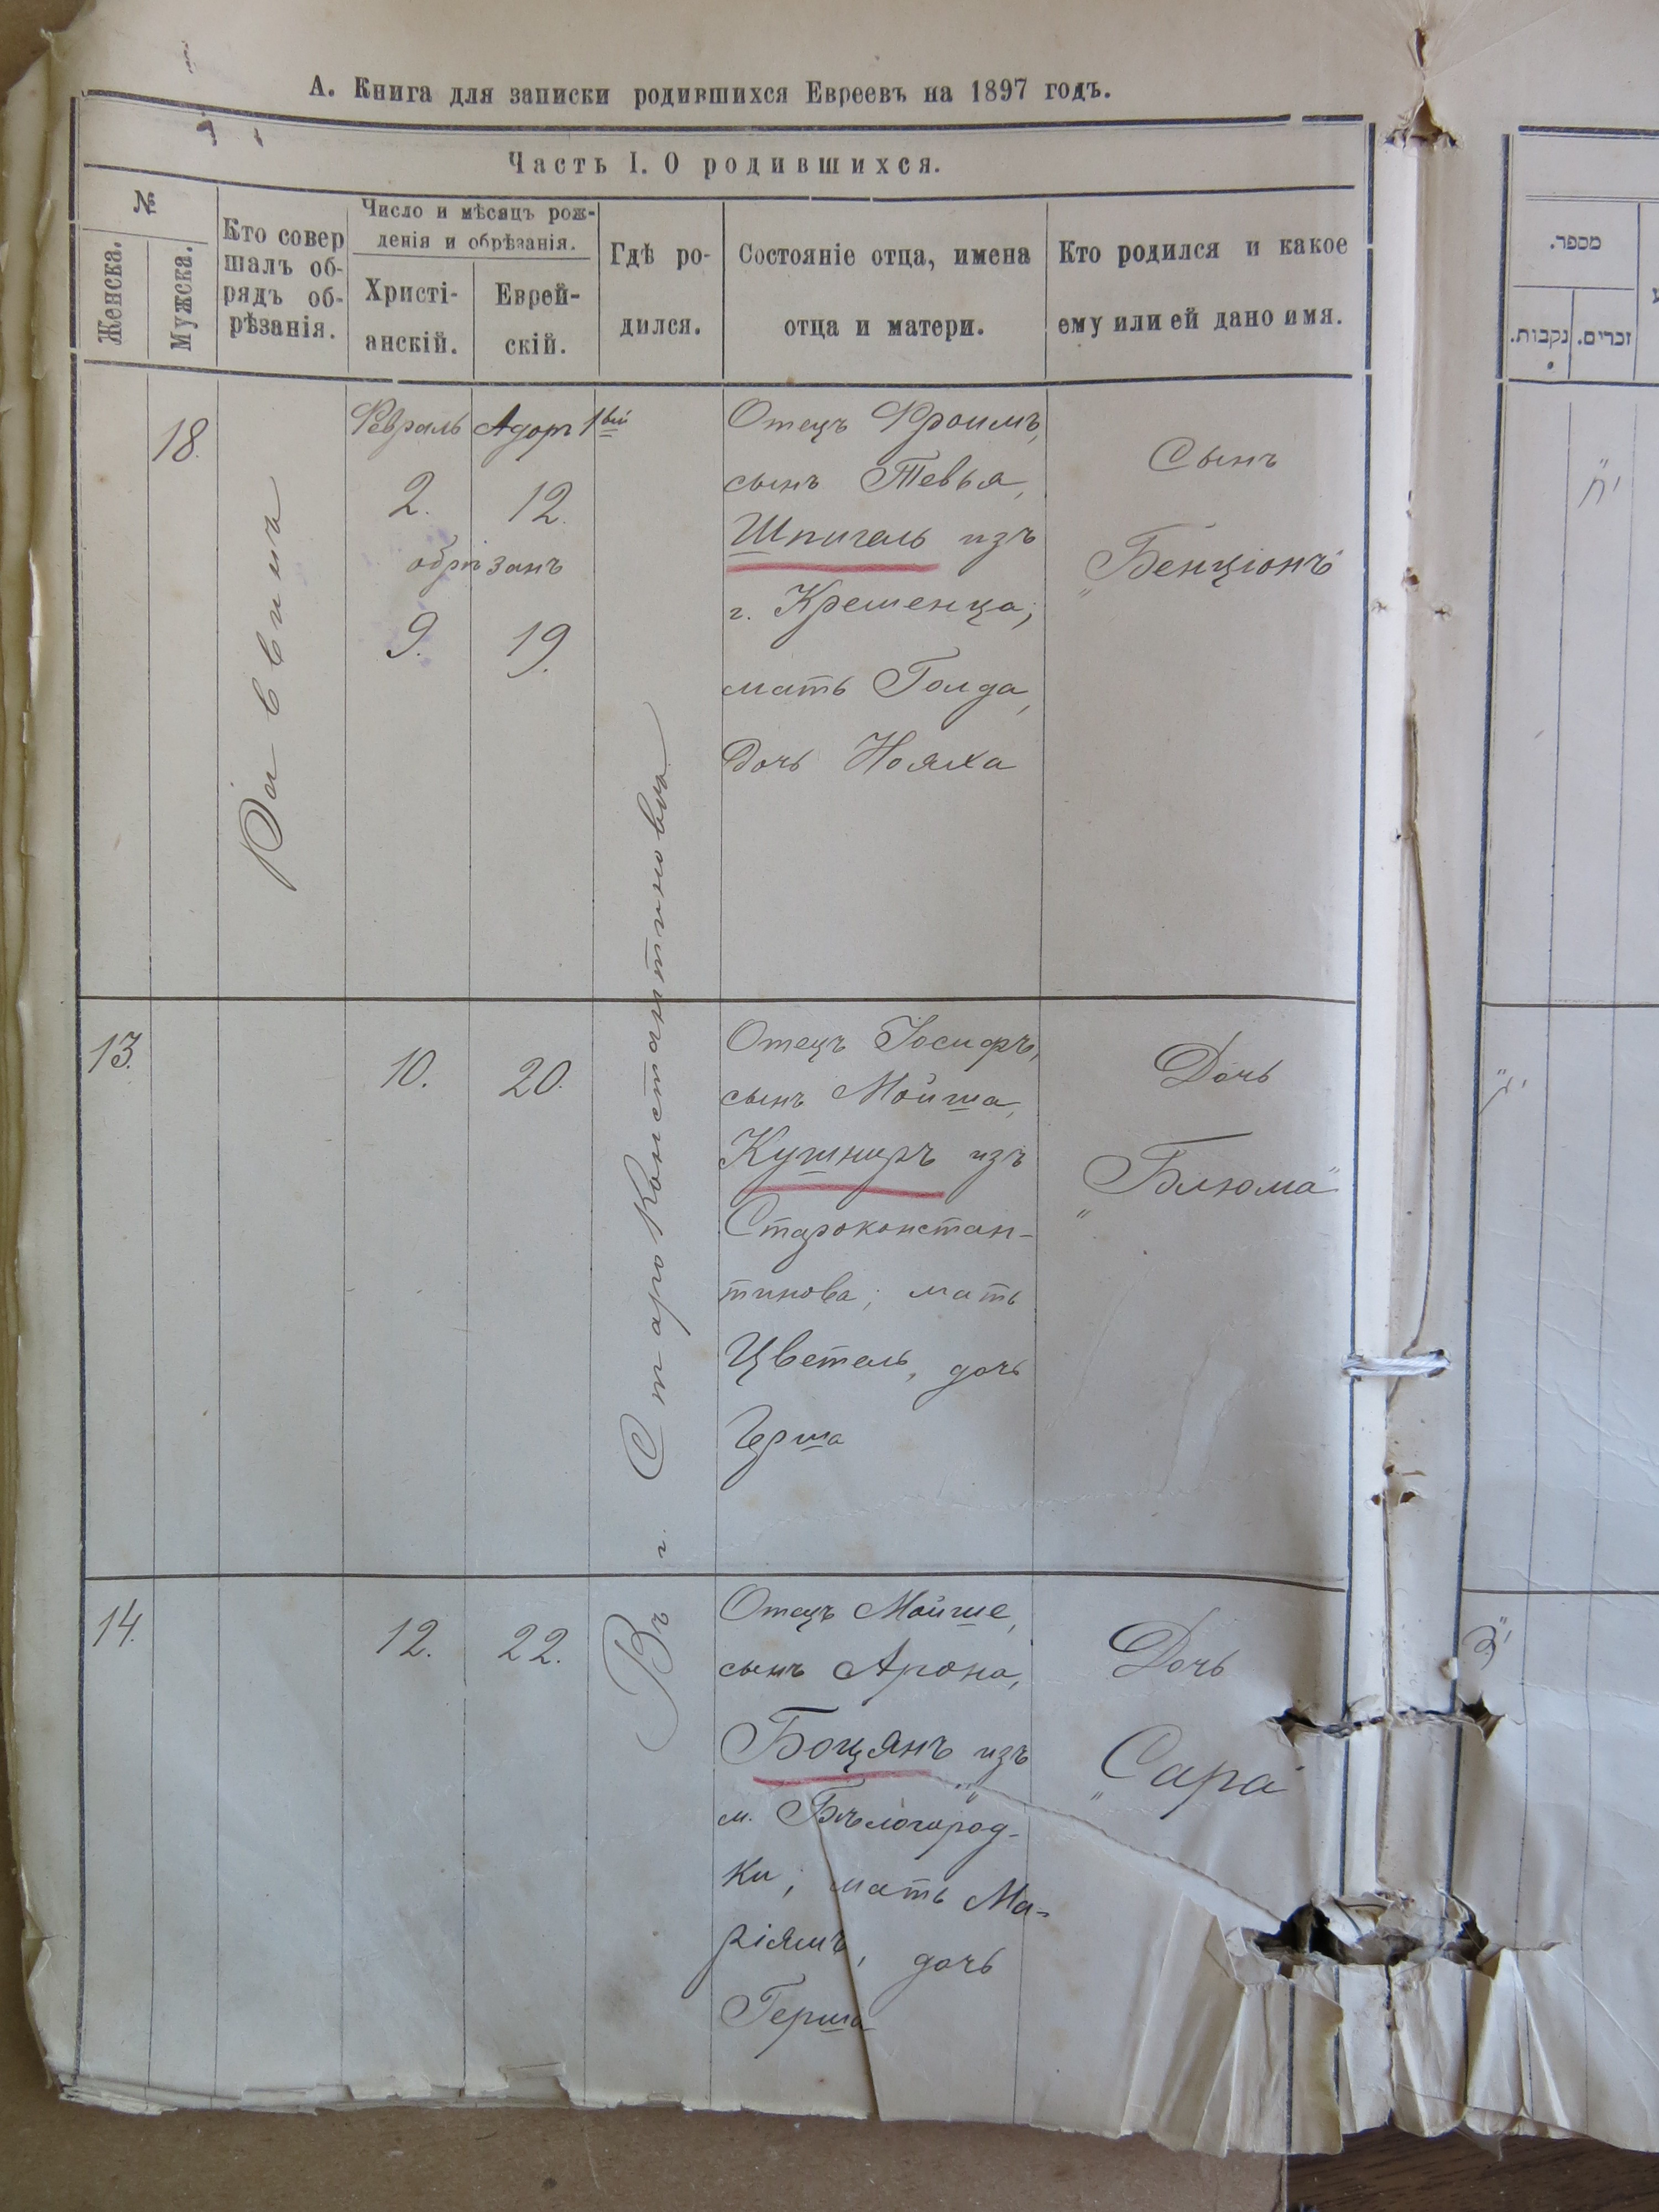 А. Книга для записки родившихся Евреевъ на 1897 годъ.
Часть I. О родившихся.
№
Женска.
Мужска.
Кто совер
шалъ об-
рядъ об-
рѣзанія.
Число и мѣсяцъ рож-
денія и обрѣзанія.
Христі-
анскій.
Еврей-
скій.
Гдѣ ро-
дился.
Состояніе отца, имена
отца и матери.
Кто родился и какое
ему или ей дано имя.
18.
Раввинъ
Февраль
Адоръ 1вый
2.
12.
обрѣзанъ
9.
19.
Въ г. Староконстантиновѣ
Отецъ Фроимъ,
сынъ Тевья,
Шпигель изъ
г. Кременца;
мать Голда,
дочь Нояха
Сынъ
„Бенціонъ"
13.
10.
20.
Отецъ Іосифъ,
сынъ Мойша,
Кушниръ изъ
Староконстан-
тинова; мать
Цветель, дочь
Герша
Дочь
„Блюма"
14.
12.
22.
Отецъ Мойше,
сынъ Арона,
Боцянъ изъ
м. Бѣлогород-
ки; мать Ма-
ріямъ, дочь
Герша
Дочь
„Сара"
מספר.
נקבות.
זכרים.
י"ח
י"ג
י"ד